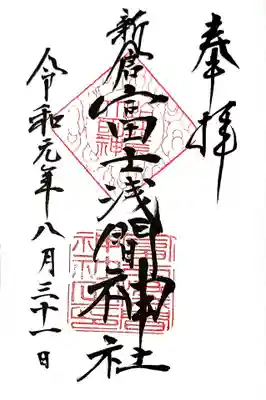 奉拝
新倉富士浅間神社
令和元年八月三十一日